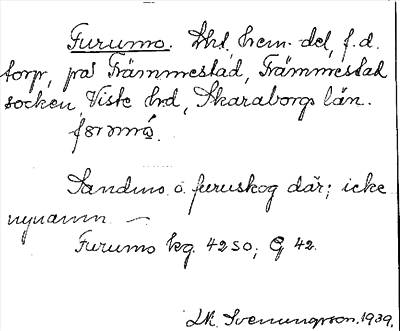 Furumo. Lht, hem.del, f.d.
torp, på Främmestad, Främmestad
socken, Viste hrd, Skaraborgs län.
Sandmo o. furuskog där; icke
nynamn —
Furumo kg. 42 SO; G 42.
Lk. Svenungsson. 1939.